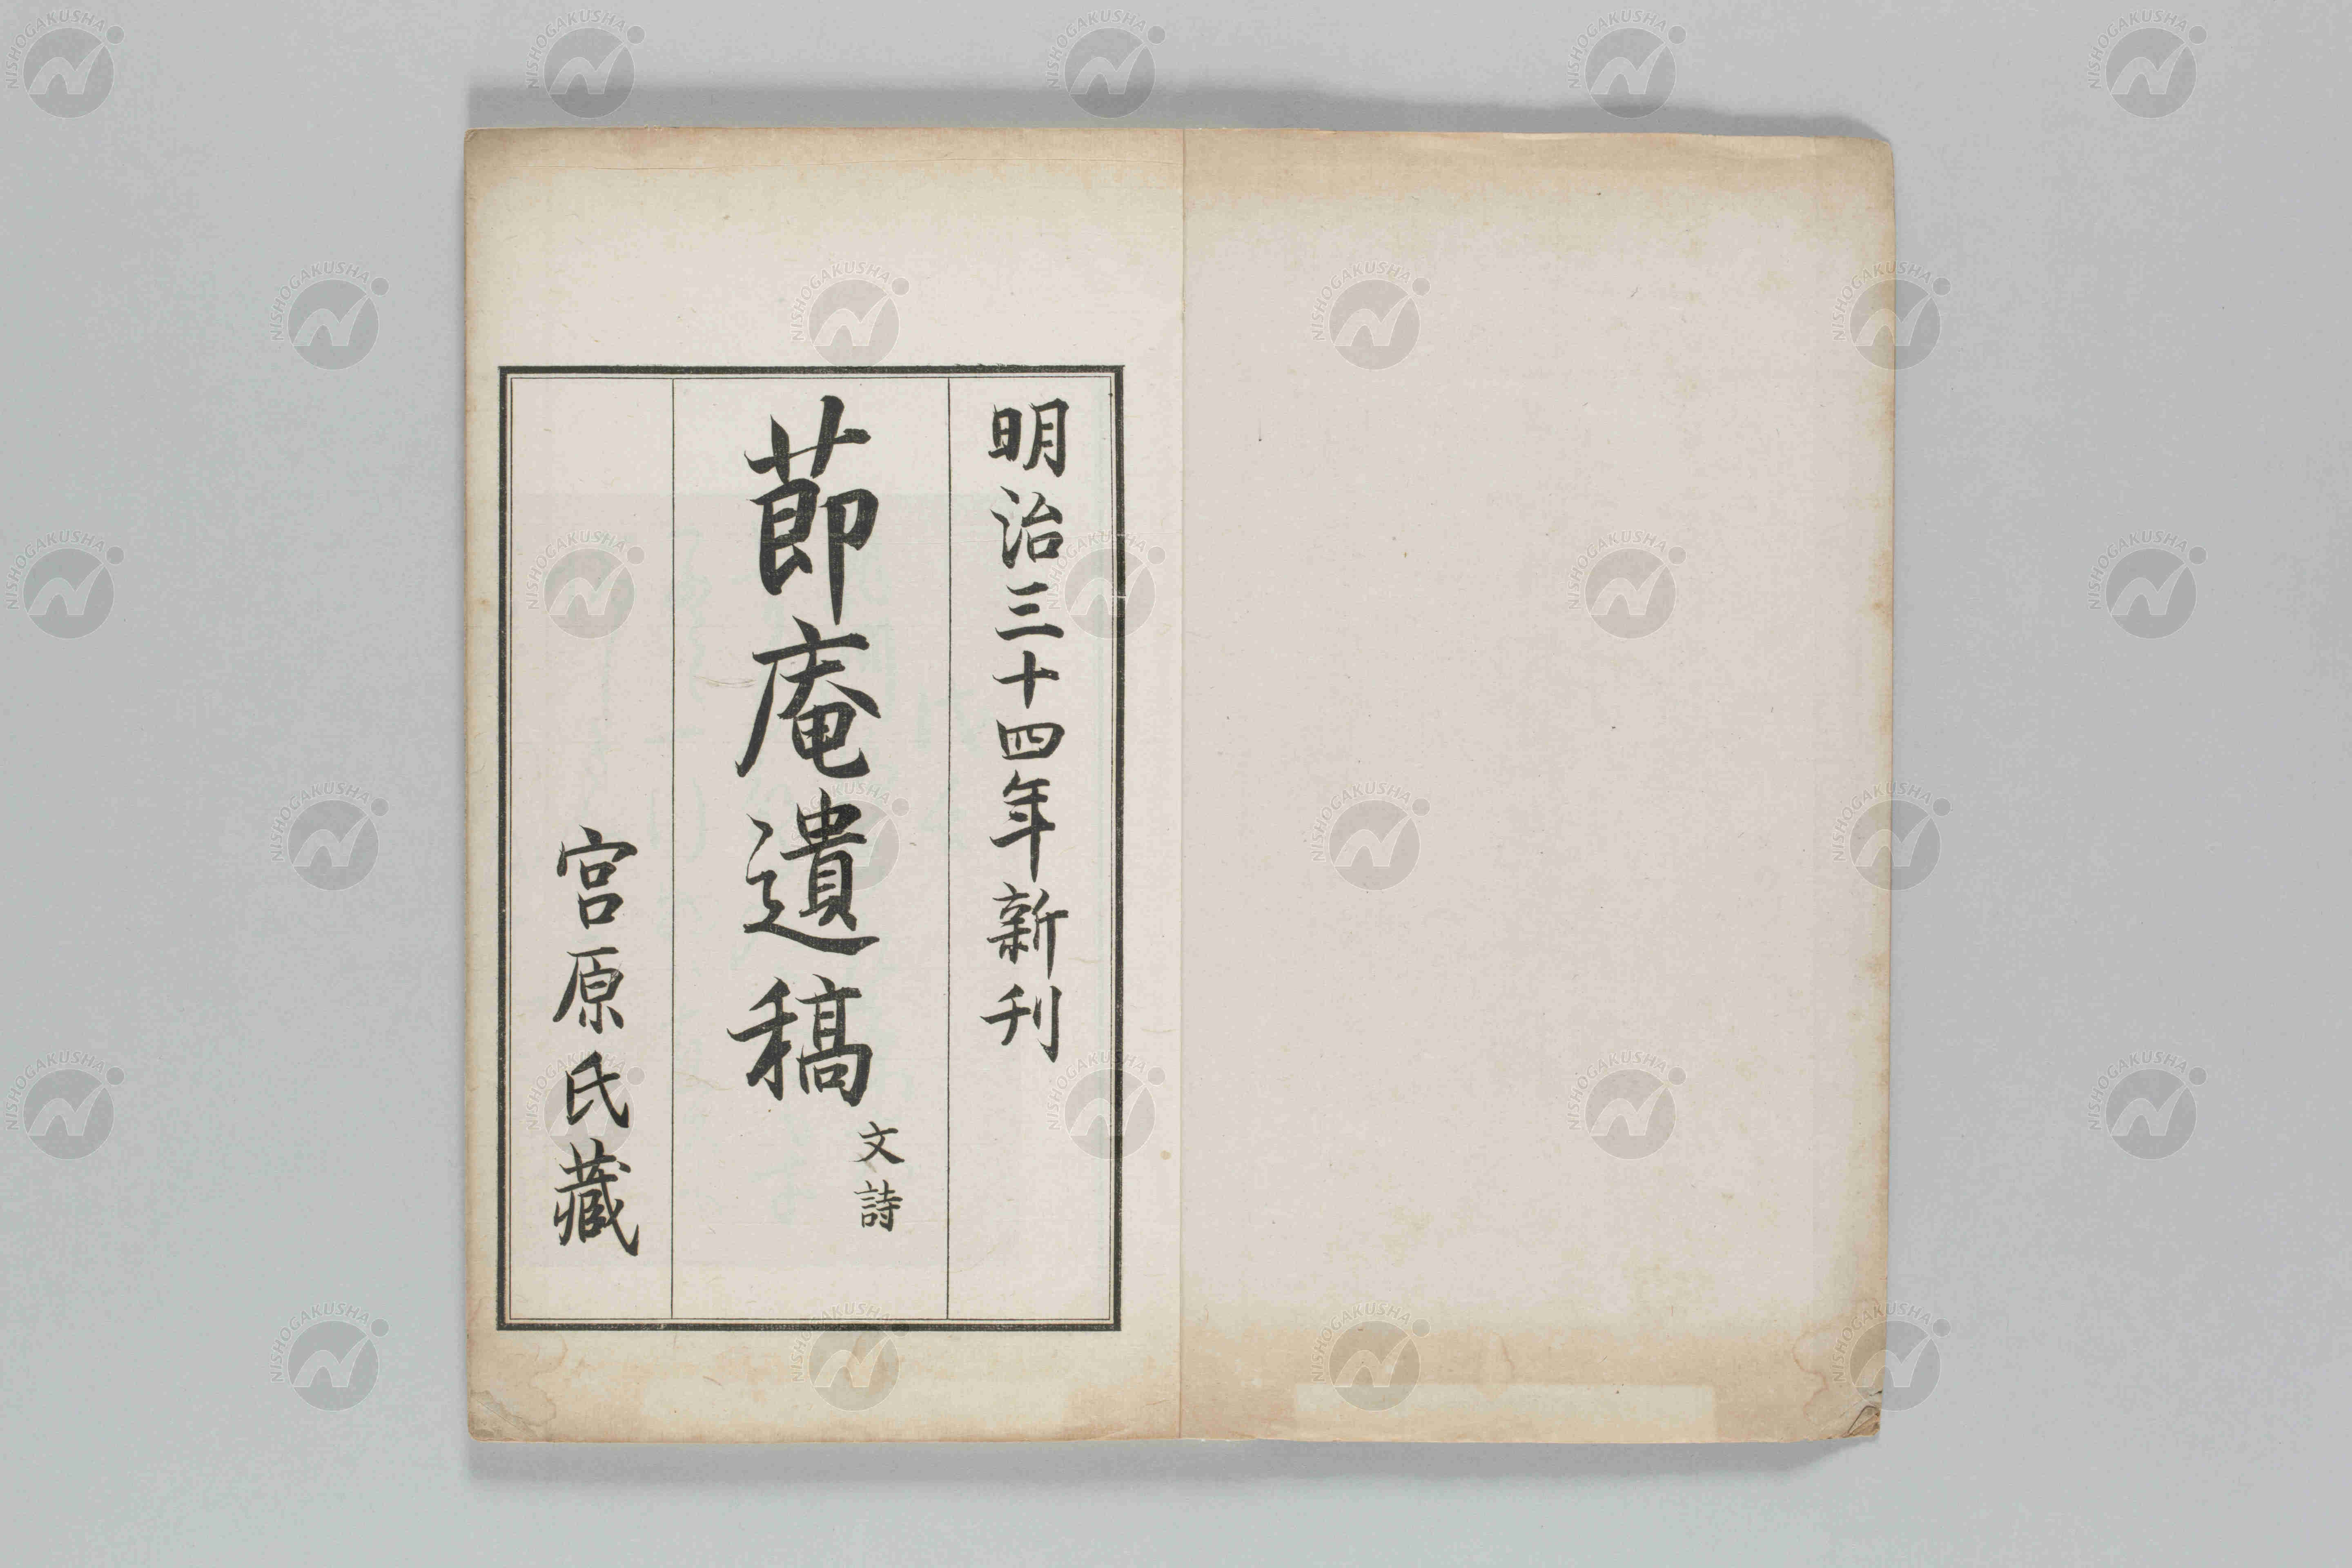 明治三十四年新刊
莭庵遺稿 文詩
宮原氏藏
NISHOGAKUSHA